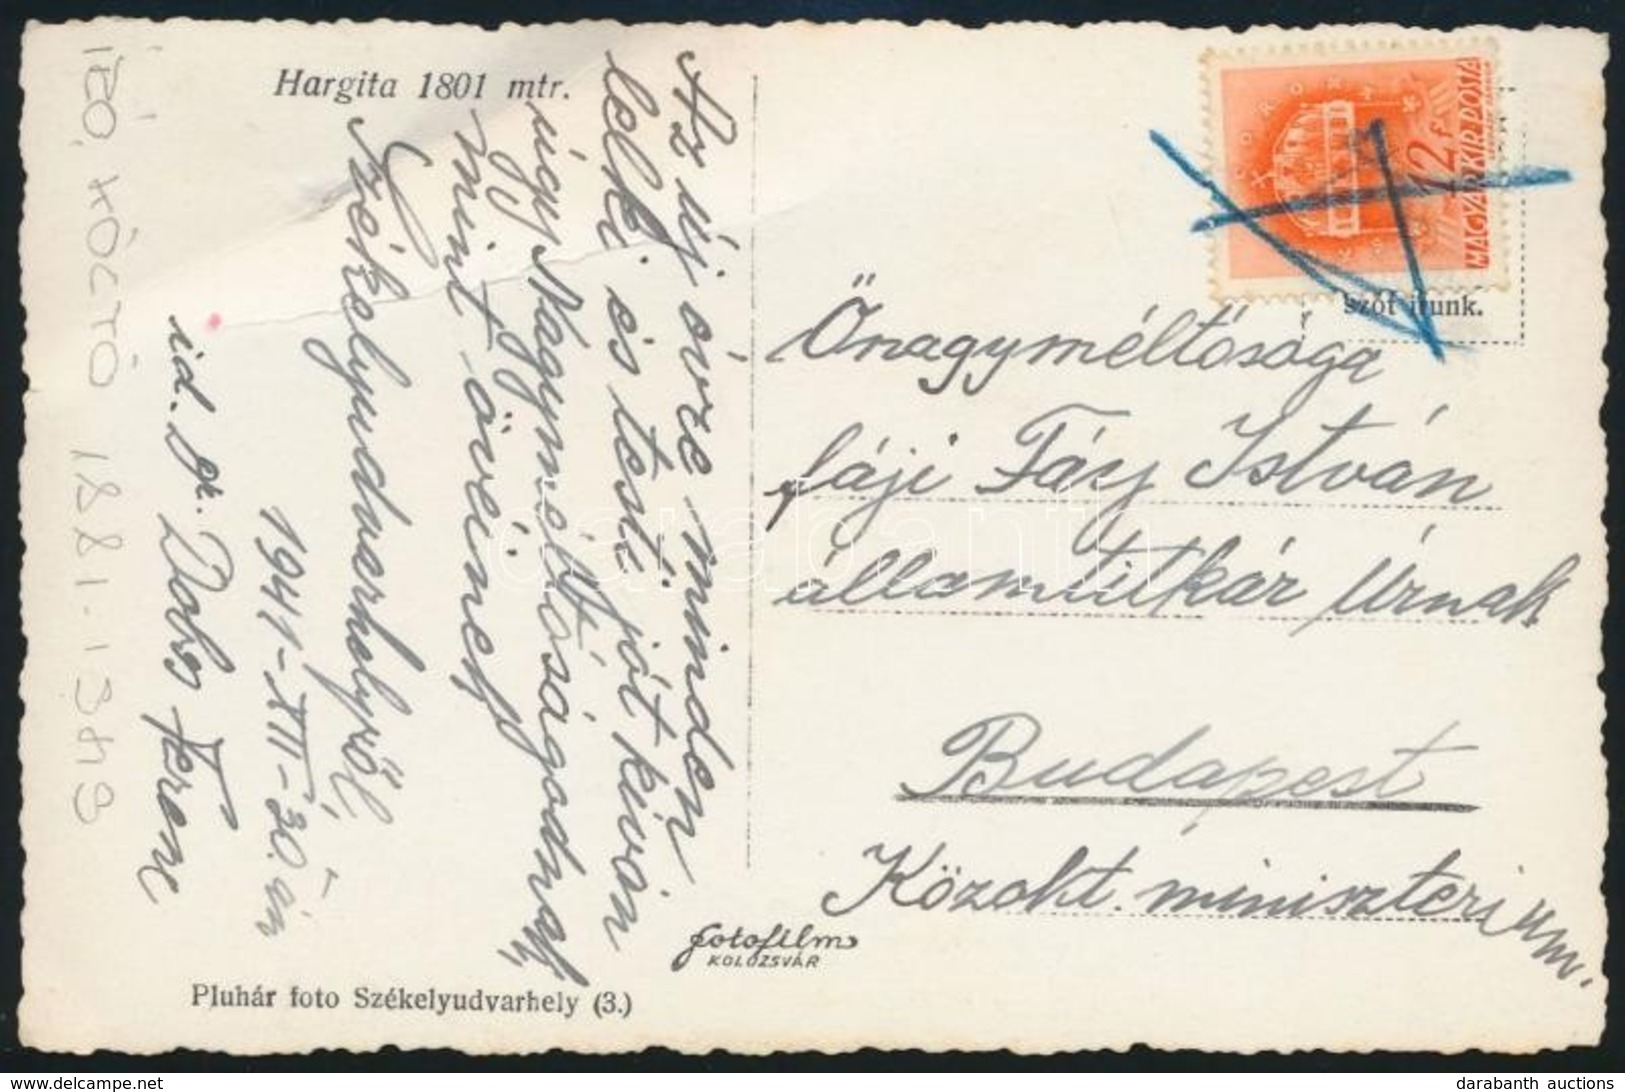 Hargita 1801 mtr.
Az új évre minden
lelki és testi jót kiván
úgy Nagyméltóságodnak,
mint övéinek
Székelyudvarhelyről,
1941-XII-30.-án
id. gr. Ferenc
író, 1881-1949
Pluhár foto Székelyudvarhely (3.)
fotofilm
KOLOZSVÁR
12 f
MAGYAR KIR. POSTA
szót írunk.
Őnagyméltósága
fáji Fáy István
államtitkár Úrnak
Budapest
Közokt. miniszterium.
darabanth
darabanth auctions